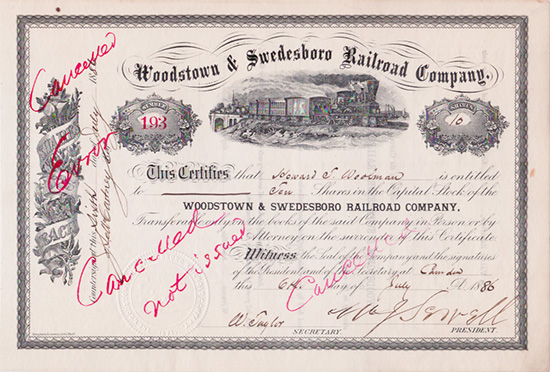 Woodstown & Swedesboro Railroad Company.
NUMBER
193
SHARES
10
This Certifies that Howard S Woolman is entitled
to Ten Shares in the Capital Stock of the
WOODSTOWN & SWEDESBORO RAILROAD COMPANY,
Transferable only on the books of the said Company in Person or by
Attorney on the surrender of this Certificate.
Witness the Seal of the Company and the signatures
of the President and of the Secretary at Camden
this 6th day of July A.D. 1886
W. Taylor
SECRETARY.
Wm J Sewell
PRESIDENT.
Countersigned this Sixth day July 1886
SHARES
EACH
Cancelled
Error
Cancelled
not issued
Cancelled